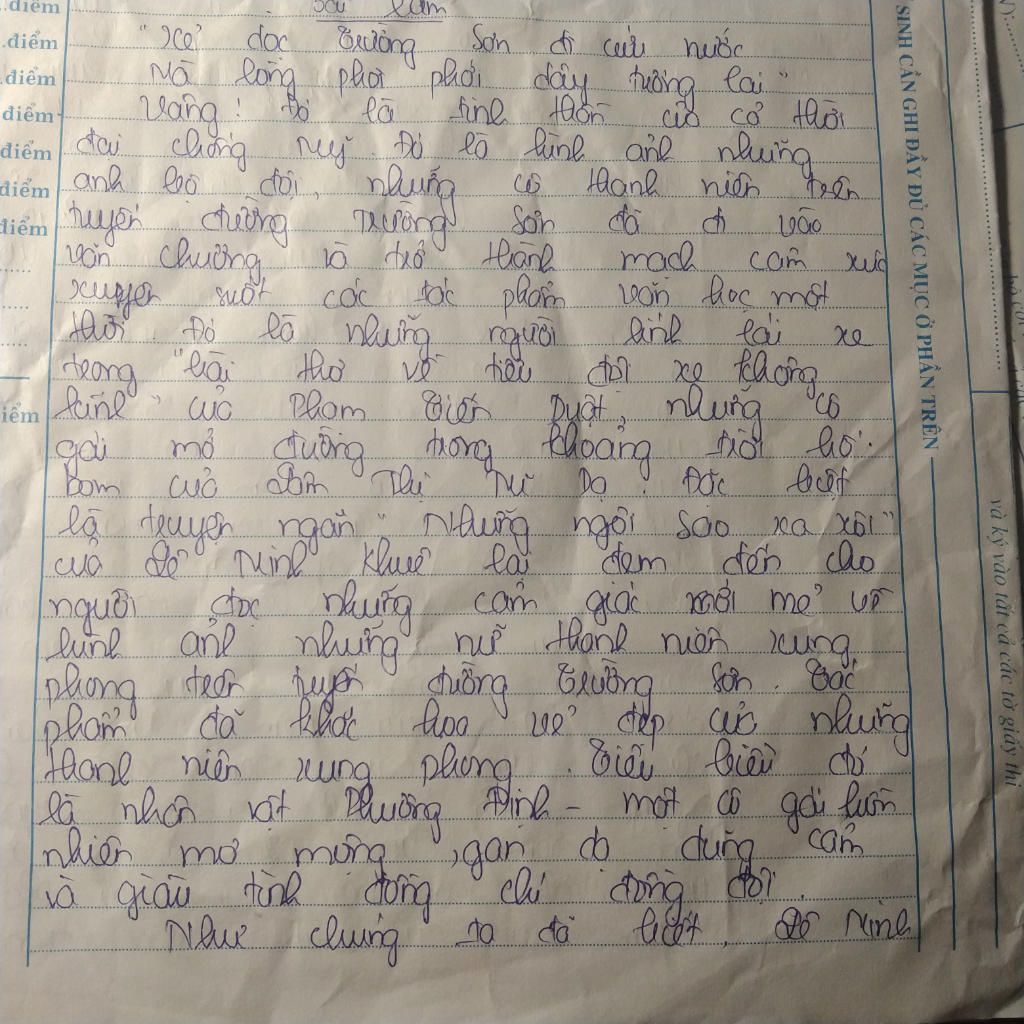 .điểm
Bài làm
.điểm
"Xẻ dọc Trường Sơn đi cứu nước
.điểm
Mà lòng phơi phới dậy tương lai"
điểm
Vâng! Đó là tinh thần của cả thời
điểm
đại chống Mỹ. Đó là hình ảnh những
điểm
anh bộ đội, những cô thanh niên trên
điểm
tuyến đường Trường Sơn đã đi vào
văn chương và trở thành mạch cảm xúc
xuyên suốt các tác phẩm văn học một
thời. Đó là những người lính lái xe
trong "bài thơ về tiểu đội xe không
iểm
kính" của Phạm Tiến Duật, những cô
gái mở đường trong khoảng trời hố
bom của Lâm Thị Mĩ Dạ. Đặc biệt
là truyện ngắn "Những ngôi sao xa xôi"
của Lê Minh Khuê lại đem đến cho
người đọc những cảm giác mới mẻ về
hình ảnh những nữ thanh niên xung
phong trên tuyến đường Trường Sơn. Tác
phẩm đã khắc họa vẻ đẹp của những
thanh niên xung phong. Tiêu biểu đó
là nhân vật Phương Định - một cô gái hồn
nhiên mơ mộng, gan dạ dũng cảm
và giàu tình đồng chí đồng đội.
Như chúng ta đã biết, Lê Minh
SINH CẦN GHI ĐẦY ĐỦ CÁC MỤC Ở PHẦN TRÊN
và ký vào tất cả các tờ giấy thi